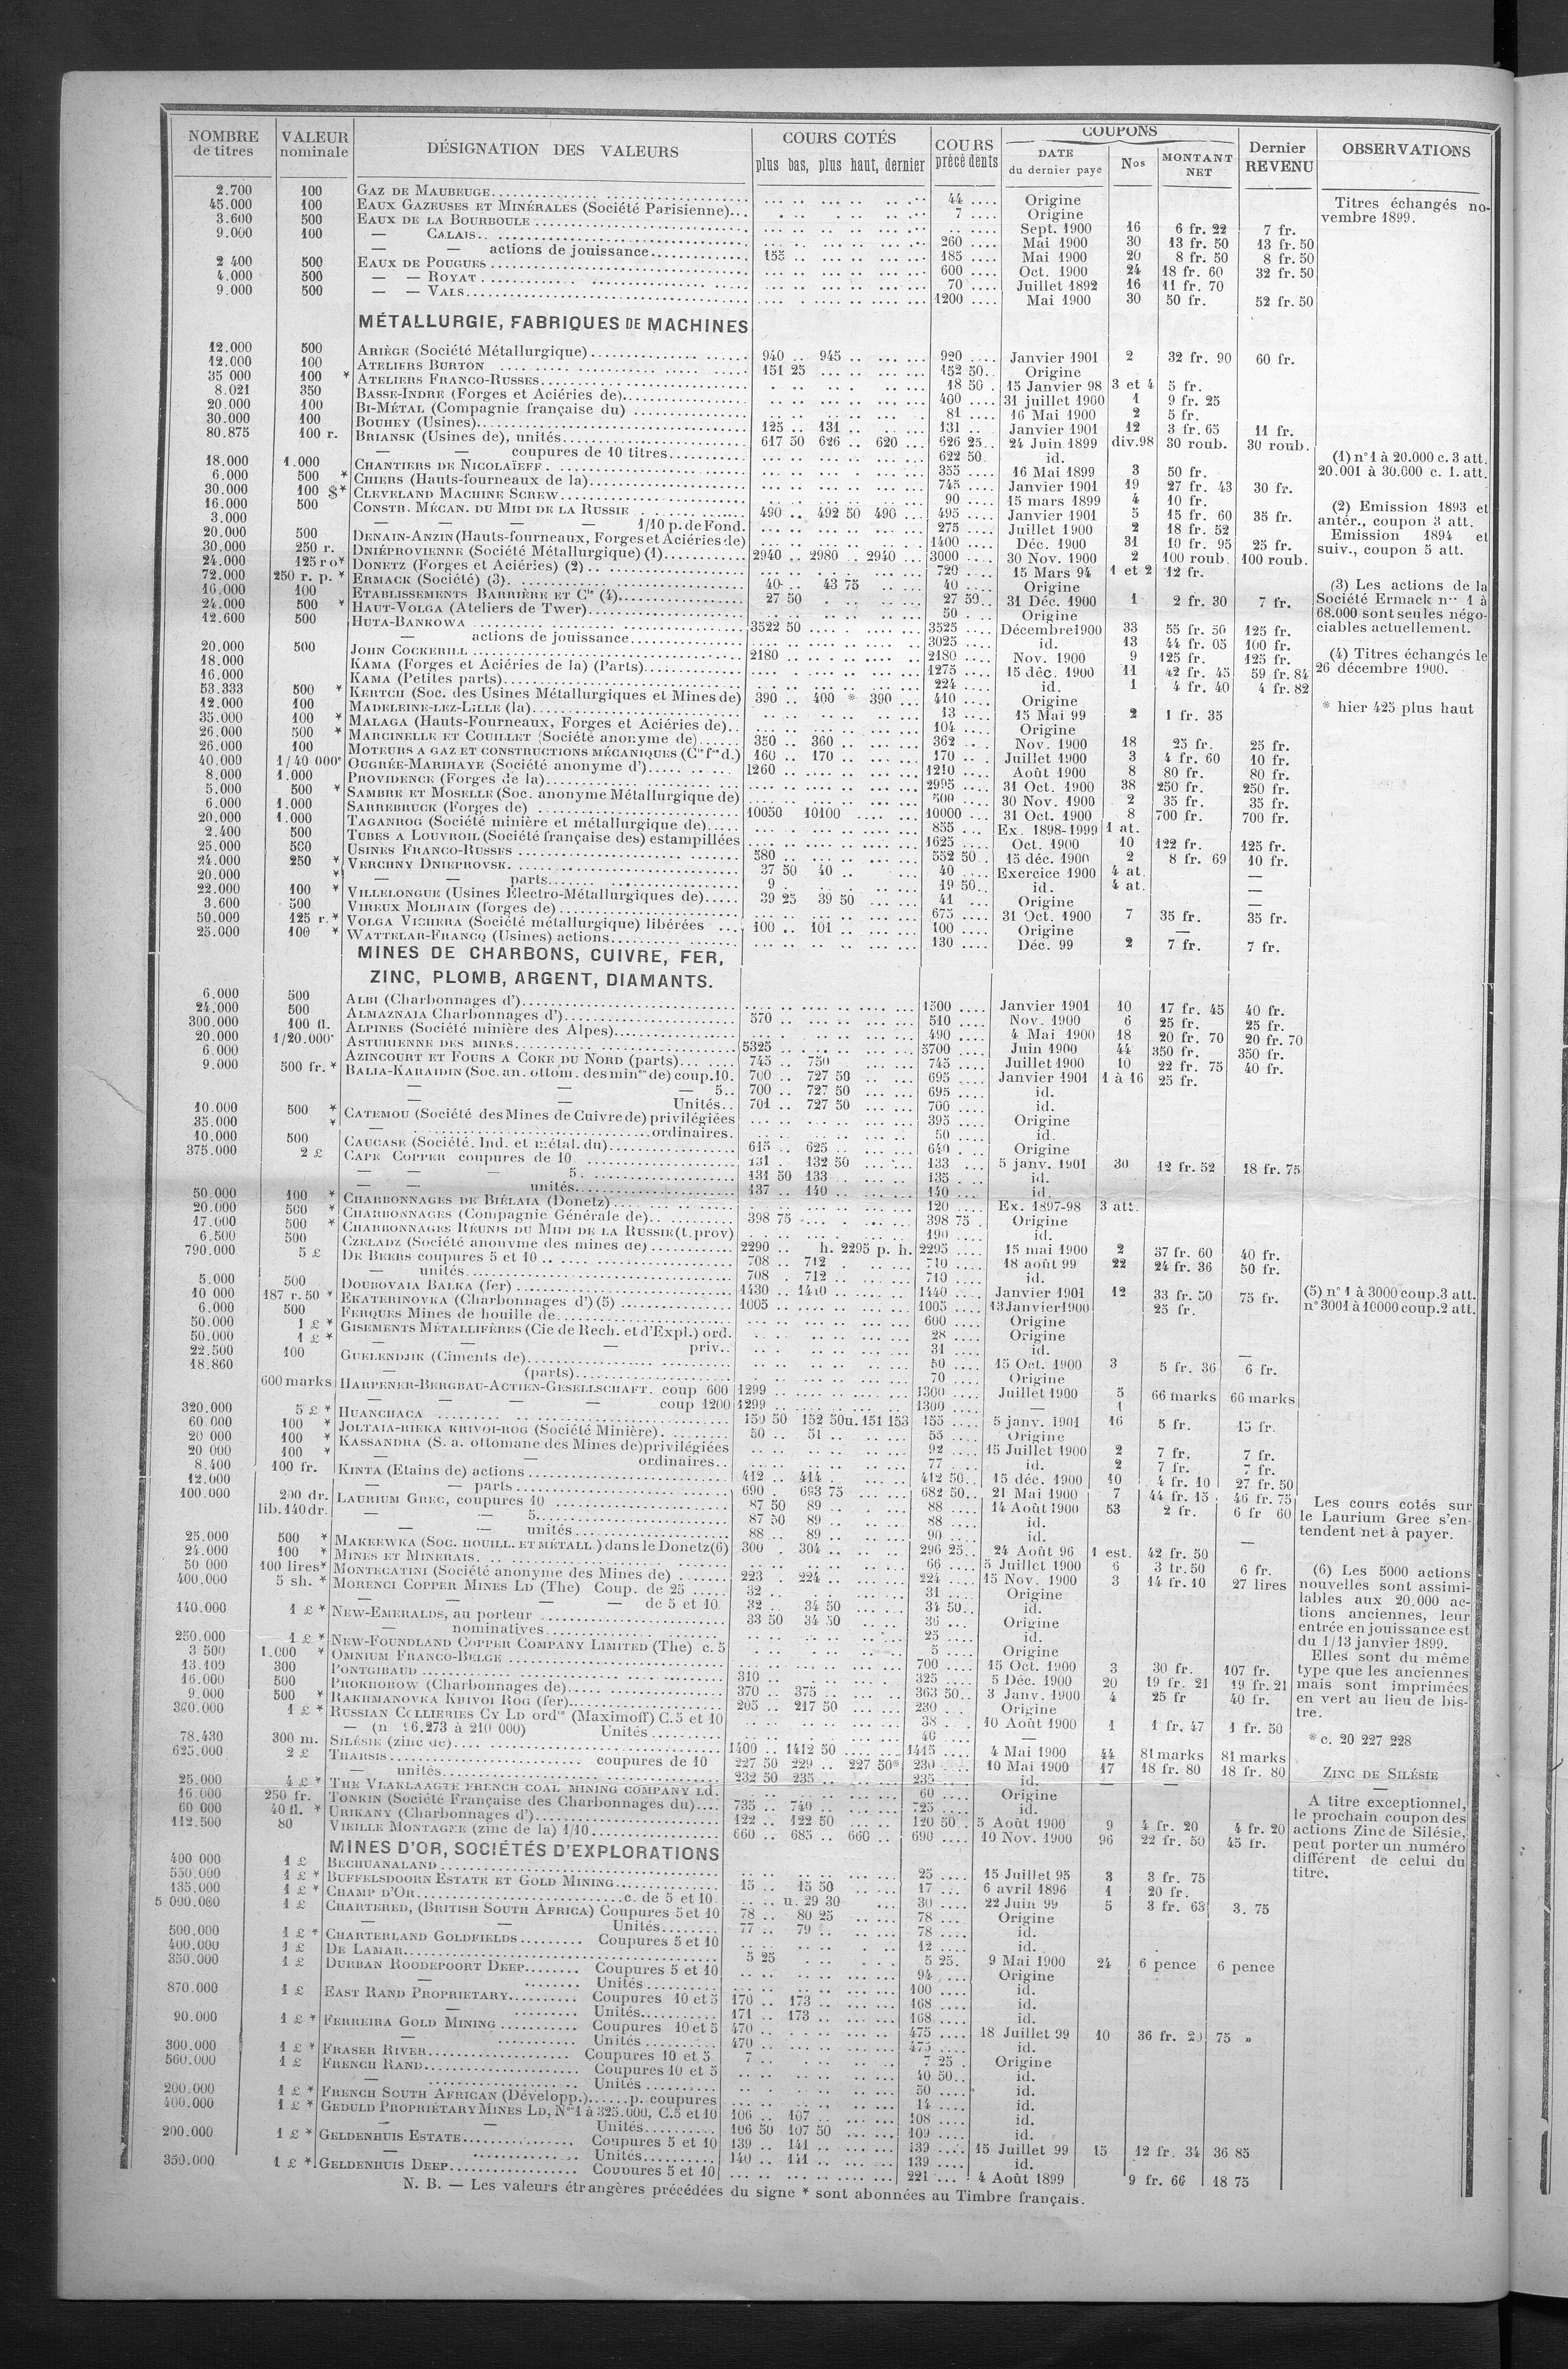 NOMBRE de titres | VALEUR nominale | DÉSIGNATION DES VALEURS | COURS COTÉS plus bas, plus haut, dernier | COURS précédents | COUPONS DATE du dernier paye | Nos | MONTANT NET | Dernier REVENU | OBSERVATIONS
2.700 100 GAZ DE MAUBEUGE 44 Origine
45.000 100 EAUX GAZEUSES ET MINÉRALES (Société Parisienne) 7 Origine
3.600 500 EAUX DE LA BOURBOULE Sept. 1900 16 6 fr. 22 7 fr.
9.000 100 — CALAIS 260 Mai 1900 30 13 fr. 50 13 fr. 50
— — actions de jouissance 155 185 Mai 1900 20 8 fr. 50 8 fr. 50
2 400 500 EAUX DE POUGUES 600 Oct. 1900 24 18 fr. 60 32 fr. 50
4.000 500 — — ROYAT 70 Juillet 1892 16 11 fr. 70
9.000 500 — — VALS 1200 Mai 1900 30 50 fr. 52 fr. 50
MÉTALLURGIE, FABRIQUES DE MACHINES
12.000 500 ARIÈGE (Société Métallurgique) 940 945 920 Janvier 1901 2 32 fr. 90 60 fr.
12.000 100 ATELIERS BURTON 151 25 152 50 Origine
35 000 100 * ATELIERS FRANCO-RUSSES 18 50 15 Janvier 98 3 et 4 5 fr.
8.021 350 BASSE-INDRE (Forges et Aciéries de) 400 31 juillet 1900 1 9 fr. 25
20.000 100 BI-MÉTAL (Compagnie française du) 81 16 Mai 1900 2 5 fr.
30.000 100 BOUHEY (Usines) 125 131 131 Janvier 1901 12 3 fr. 65 11 fr.
80.875 100 r. BRIANSK (Usines de), unités 617 50 626 620 626 25 24 Juin 1899 div.98 30 roub. 30 roub.
— — coupures de 10 titres 622 50 id.
18.000 1.000 CHANTIERS DE NICOLAÏEFF 355 16 Mai 1899 3 50 fr.
6.000 500 * CHIERS (Hauts-fourneaux de la) 745 Janvier 1901 19 27 fr. 43 30 fr.
30.000 100 $* CLEVELAND MACHINE SCREW 90 15 mars 1899 4 10 fr.
16.000 500 CONSTR. MÉCAN. DU MIDI DE LA RUSSIE 490 492 50 490 495 Janvier 1901 5 15 fr. 60 35 fr.
3.000 — — — — 1/10 p. de Fond. 275 Juillet 1900 2 18 fr. 52
20.000 500 DENAIN-ANZIN (Hauts-fourneaux, Forges et Aciéries de) 1400 Déc. 1900 31 10 fr. 95 25 fr.
30.000 250 r. DNIÉPROVIENNE (Société Métallurgique) (1) 2940 2980 2940 3000 30 Nov. 1900 2 100 roub. 100 roub.
24.000 125 ro* DONETZ (Forges et Aciéries) (2) 720 15 Mars 94 1 et 2 12 fr.
72.000 250 r. p. * ERMACK (Société) (3) 40 43 75 40 Origine
16,000 100 ETABLISSEMENTS BARRIÈRE ET Cie (4) 27 50 27 50 31 Déc. 1900 1 2 fr. 30 7 fr.
24.000 500 * HAUT-VOLGA (Ateliers de Twer) 50 Origine
12.600 500 HUTA-BANKOWA 3522 50 3525 Décembre 1900 33 55 fr. 50 125 fr.
— actions de jouissance 3025 id. 13 44 fr. 05 100 fr.
20.000 500 JOHN COCKERILL 2180 2180 Nov. 1900 9 125 fr. 125 fr.
18.000 KAMA (Forges et Aciéries de la) (Parts) 1275 15 déc. 1900 11 42 fr. 45 59 fr. 84
16.000 KAMA (Petites parts) 224 id. 1 4 fr. 40 4 fr. 82
53.333 500 * KERTCH (Soc. des Usines Métallurgiques et Mines de) 390 400 * 390 410 Origine
12.000 100 MADELEINE-LEZ-LILLE (la) 13 15 Mai 99 2 1 fr. 35
35.000 100 * MALAGA (Hauts-Fourneaux, Forges et Aciéries de) 104 Origine
26.000 500 * MARCINELLE ET COUILLET (Société anonyme de) 350 360 362 Nov. 1900 18 25 fr. 25 fr.
26.000 100 MOTEURS A GAZ ET CONSTRUCTIONS MÉCANIQUES (Cie fse d.) 160 170 170 Juillet 1900 3 4 fr. 60 10 fr.
40.000 1/40 000e OUGRÉE-MARIHAYE (Société anonyme d') 1260 1210 Août 1900 8 80 fr. 80 fr.
8.000 1.000 PROVIDENCE (Forges de la) 2995 31 Oct. 1900 38 250 fr. 250 fr.
5.000 500 * SAMBRE ET MOSELLE (Soc. anonyme Métallurgique de) 500 30 Nov. 1900 2 35 fr. 35 fr.
6.000 1.000 SARREBRUCK (Forges de) 10050 10100 10000 31 Oct. 1900 8 700 fr. 700 fr.
20.000 1.000 TAGANROG (Société minière et métallurgique de) 855 Ex. 1898-1999 1 at.
2.400 500 TUBES A LOUVROIL (Société française des) estampillées 1625 Oct. 1900 10 122 fr. 125 fr.
25.000 500 USINES FRANCO-RUSSES 580 552 50 15 déc. 1900 2 8 fr. 69 10 fr.
24.000 250 * VERCHNY DNIEPROVSK 37 50 40 40 Exercice 1900 4 at. —
20.000 * — — parts 9 19 50 id. 4 at. —
22.000 100 * VILLELONGUE (Usines Électro-Métallurgiques de) 39 25 39 50 41 Origine —
3.600 500 VIREUX MOLHAIN (forges de) 675 31 Oct. 1900 7 35 fr. 35 fr.
50.000 125 r.* VOLGA VICHERA (Société métallurgique) libérées 100 101 100 Origine —
25.000 100 * WATTELAR-FRANCQ (Usines) actions 130 Déc. 99 2 7 fr. 7 fr.
MINES DE CHARBONS, CUIVRE, FER,
ZINC, PLOMB, ARGENT, DIAMANTS.
6.000 500 ALBI (Charbonnages d') 1500 Janvier 1901 10 17 fr. 45 40 fr.
24.000 500 ALMAZNAIA Charbonnages d') 570 510 Nov. 1900 6 25 fr. 25 fr.
300.000 100 fl. ALPINES (Société minière des Alpes) 490 4 Mai 1900 18 20 fr. 70 20 fr. 70
20.000 1/20.000e ASTURIENNE DES MINES 5325 5700 Juin 1900 44 350 fr. 350 fr.
6.000 AZINCOURT ET FOURS A COKE DU NORD (parts) 745 750 745 Juillet 1900 10 22 fr. 75 40 fr.
9.000 500 fr. * BALIA-KARAIDIN (Soc. an. ottom. des mines de) coup. 10. 700 727 50 695 Janvier 1901 1 à 16 25 fr.
— — — 5 700 727 50 695 id.
— — Unités 701 727 50 700 id.
10.000 500 * CATEMOU (Société des Mines de Cuivre de) privilégiées 395 Origine
35.000 * — ordinaires. 50 id.
10.000 500 CAUCASE (Société. Ind. et métal. du) 615 625 640 Origine
375.000 2 £ CAPE COPPER coupures de 10 131 132 50 133 5 janv. 1901 30 12 fr. 52 18 fr. 75
— — — 5 131 50 133 135 id.
— — unités 137 140 140 id.
50.000 100 * CHARBONNAGES DE BIÉLAIA (Donetz) 120 Ex. 1897-98 3 att.
20.000 500 * CHARBONNAGES (Compagnie Générale de) 398 75 398 75 Origine
17.000 500 * CHARBONNAGES RÉUNIS DU MIDI DE LA RUSSIE (t. prov) 190 id.
6.500 500 CZELADZ (Société anonyme des mines de) 2290 h. 2295 p. h. 2295 15 mai 1900 2 37 fr. 60 40 fr.
790.000 5 £ DE BEERS coupures 5 et 10 708 712 710 18 août 99 22 24 fr. 36 50 fr.
— unités 708 712 710 id.
5.000 500 DOUBOVAIA BALKA (fer) 1430 1440 1440 Janvier 1901 12 33 fr. 50 75 fr.
10 000 187 r. 50 * EKATERINOVKA (Charbonnages d') (5) 1005 1005 13 Janvier 1900 25 fr.
6.000 500 FERQUES Mines de houille de 600 Origine
50.000 1 £ * GISEMENTS MÉTALLIFÈRES (Cie de Rech. et d'Expl.) ord. 28 Origine
50.000 1 £ * — — — priv. 31 id. —
22.500 100 GUELENDJIK (Ciments de) 50 15 Oct. 1900 3 5 fr. 36 6 fr.
18.860 — (parts) 70 Origine
600 marks HARPENER-BERGBAU-ACTIEN-GESELLSCHAFT. coup 600 1299 1300 Juillet 1900 5 66 marks 66 marks
— — — coup 1200 1299 1300 — 1
320.000 5 £ * HUANCHACA 150 50 152 50 u. 151 153 155 5 janv. 1901 16 5 fr. 15 fr.
60.000 100 * JOLTAIA-RIEKA KRIVOI-ROG (Société Minière) 50 51 55 Origine
20 000 100 * KASSANDRA (S. a. ottomane des Mines de) privilégiées 92 15 Juillet 1900 2 7 fr. 7 fr.
20 000 100 * — ordinaires 77 id. 2 7 fr. 7 fr.
8.400 100 fr. KINTA (Etains de) actions 412 414 412 50 15 déc. 1900 10 4 fr. 10 27 fr. 50
12.000 — parts 690 693 75 682 50 21 Mai 1900 7 44 fr. 15 46 fr. 75
100.000 200 dr. LAURIUM GREC, coupures 10 87 50 89 88 14 Août 1900 53 2 fr. 6 fr 60
lib. 140 dr. — — 5 87 50 89 88 id.
— — unités 88 89 90 id. —
25.000 500 * MAKEEWKA (Soc. HOUILL. ET MÉTALL.) dans le Donetz (6) 300 304 296 25 24 Août 96 1 est. 42 fr. 50
24.000 100 * MINES ET MINERAIS 66 5 Juillet 1900 6 3 fr. 50 6 fr.
50 000 100 lires* MONTECATINI (Société anonyme des Mines de) 223 224 224 15 Nov. 1900 3 14 fr. 10 27 lires
400,000 5 sh. * MORENCI COPPER MINES LD (The) Coup. de 25 32 31 Origine
— — — de 5 et 10 32 34 50 34 50 id.
140.000 1 £ * NEW-EMERALDS, au porteur 33 50 34 50 36 Origine
— nominatives 25 id.
250.000 1 £ * NEW-FOUNDLAND COPPER COMPANY LIMITED (The) c. 5 5 Origine
3 500 1.000 * OMNIUM FRANCO-BELGE 700 15 Oct. 1900 3 30 fr. 107 fr.
13.109 300 PONTGIBAUD 310 325 5 Déc. 1900 20 19 fr. 21 19 fr. 21
16.000 500 PROKHOROW (Charbonnages de) 370 375 363 50 3 Janv. 1900 4 25 fr 40 fr.
9.000 500 * RAKHMANOVKA KRIVOI ROG (fer) 205 217 50 230 Origine
360.000 1 £ * RUSSIAN COLLIERIES CY LD ordre (Maximoff) C. 5 et 10 38 10 Août 1900 1 1 fr. 47 1 fr. 50
— (n 6.273 à 210 000) Unités 40 —
78.430 300 m. SILÉSIE (zinc de) 1400 1412 50 1415 4 Mai 1900 44 81 marks 81 marks
625.000 2 £ THARSIS coupures de 10 227 50 229 227 50* 230 10 Mai 1900 17 18 fr. 80 18 fr. 80
— unités 232 50 235 235 id. — —
25.000 4 £ * THE VLAKLAAGTE FRENCH COAL MINING COMPANY Ld. 60 Origine
16.000 250 fr. TONKIN (Société Française des Charbonnages du) 735 740 725 id.
60 000 40 fl. * URIKANY (Charbonnages d') 122 122 50 120 50 5 Août 1900 9 4 fr. 20 4 fr. 20
112.500 80 VIEILLE MONTAGNE (zinc de la) 1/10 660 685 660 690 10 Nov. 1900 96 22 fr. 50 45 fr.
MINES D'OR, SOCIÉTÉS D'EXPLORATIONS
400 000 1 £ BECHUANALAND 25 15 Juillet 95 3 3 fr. 75
550.000 1 £ * BUFFELSDOORN ESTATE ET GOLD MINING 15 15 50 17 6 avril 1896 1 20 fr.
135.000 1 £ * CHAMP D'OR c. de 5 et 10 u. 29 30 30 22 Juin 99 5 3 fr. 63 3. 75
5.000.000 1 £ CHARTERED, (BRITISH SOUTH AFRICA) Coupures 5 et 10 78 80 25 78 Origine
— — Unités 77 79 78 id.
500.000 1 £ * CHARTERLAND GOLDFIELDS Coupures 5 et 10 12 id.
400.000 1 £ DE LAMAR 5 25 5 25 9 Mai 1900 24 6 pence 6 pence
350.000 1 £ DURBAN ROODEPOORT DEEP Coupures 5 et 10 94 Origine
— Unités 100 id.
870.000 1 £ EAST RAND PROPRIETARY Coupures 10 et 5 170 173 168 id.
— Unités 171 173 168 id.
90.000 1 £ * FERREIRA GOLD MINING Coupures 10 et 5 470 475 18 Juillet 99 10 36 fr. 20 75 »
— Unités 470 475 id.
300.000 1 £ * FRASER RIVER Coupures 10 et 5 7 7 25 Origine
560.000 1 £ FRENCH RAND Coupures 10 et 5 40 50 id.
— Unités 50 id.
200.000 1 £ * FRENCH SOUTH AFRICAN (Développ.) p. coupures 14 id.
400.000 1 £ * GEDULD PROPRIÉTARY MINES LD, Nos 1 à 325.000, C. 5 et 10 106 107 108 id.
— — Unités 106 50 107 50 109 id.
200.000 1 £ * GELDENHUIS ESTATE Coupures 5 et 10 139 141 139 15 Juillet 99 15 12 fr. 34 36 85
— Unités 140 141 139 id.
350.000 1 £ * GELDENHUIS DEEP Coupures 5 et 10 221 4 Août 1899 9 fr. 66 18 75
N. B. — Les valeurs étrangères précédées du signe * sont abonnées au Timbre français.
Titres échangés no-
vembre 1899.
(1) n° 1 à 20.000 c. 3 att.
20.001 à 30.000 c. 1. att.
(2) Emission 1893 et
antér., coupon 3 att.
Emission 1894 et
suiv., coupon 5 att.
(3) Les actions de la
Société Ermack nos 1 à
68.000 sont seules négo-
ciables actuellement.
(4) Titres échangés le
26 décembre 1900.
* hier 425 plus haut
(5) n° 1 à 3000 coup. 3 att.
n° 3001 à 10000 coup. 2 att.
Les cours cotés sur
le Laurium Grec s'en-
tendent net à payer.
(6) Les 5000 actions
nouvelles sont assimi-
lables aux 20.000 ac-
tions anciennes, leur
entrée en jouissance est
du 1/13 janvier 1899.
Elles sont du même
type que les anciennes
mais sont imprimées
en vert au lieu de bis-
tre.
* c. 20 227 228
ZINC DE SILÉSIE
A titre exceptionnel,
le prochain coupon des
actions Zinc de Silésie,
peut porter un numéro
différent de celui du
titre.